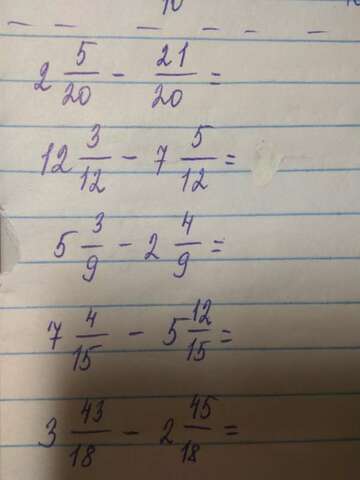 2 5/20 - 21/20 =
12 3/12 - 7 5/12 =
5 3/9 - 2 4/9 =
7 4/15 - 5 12/15 =
3 43/18 - 2 45/18 =